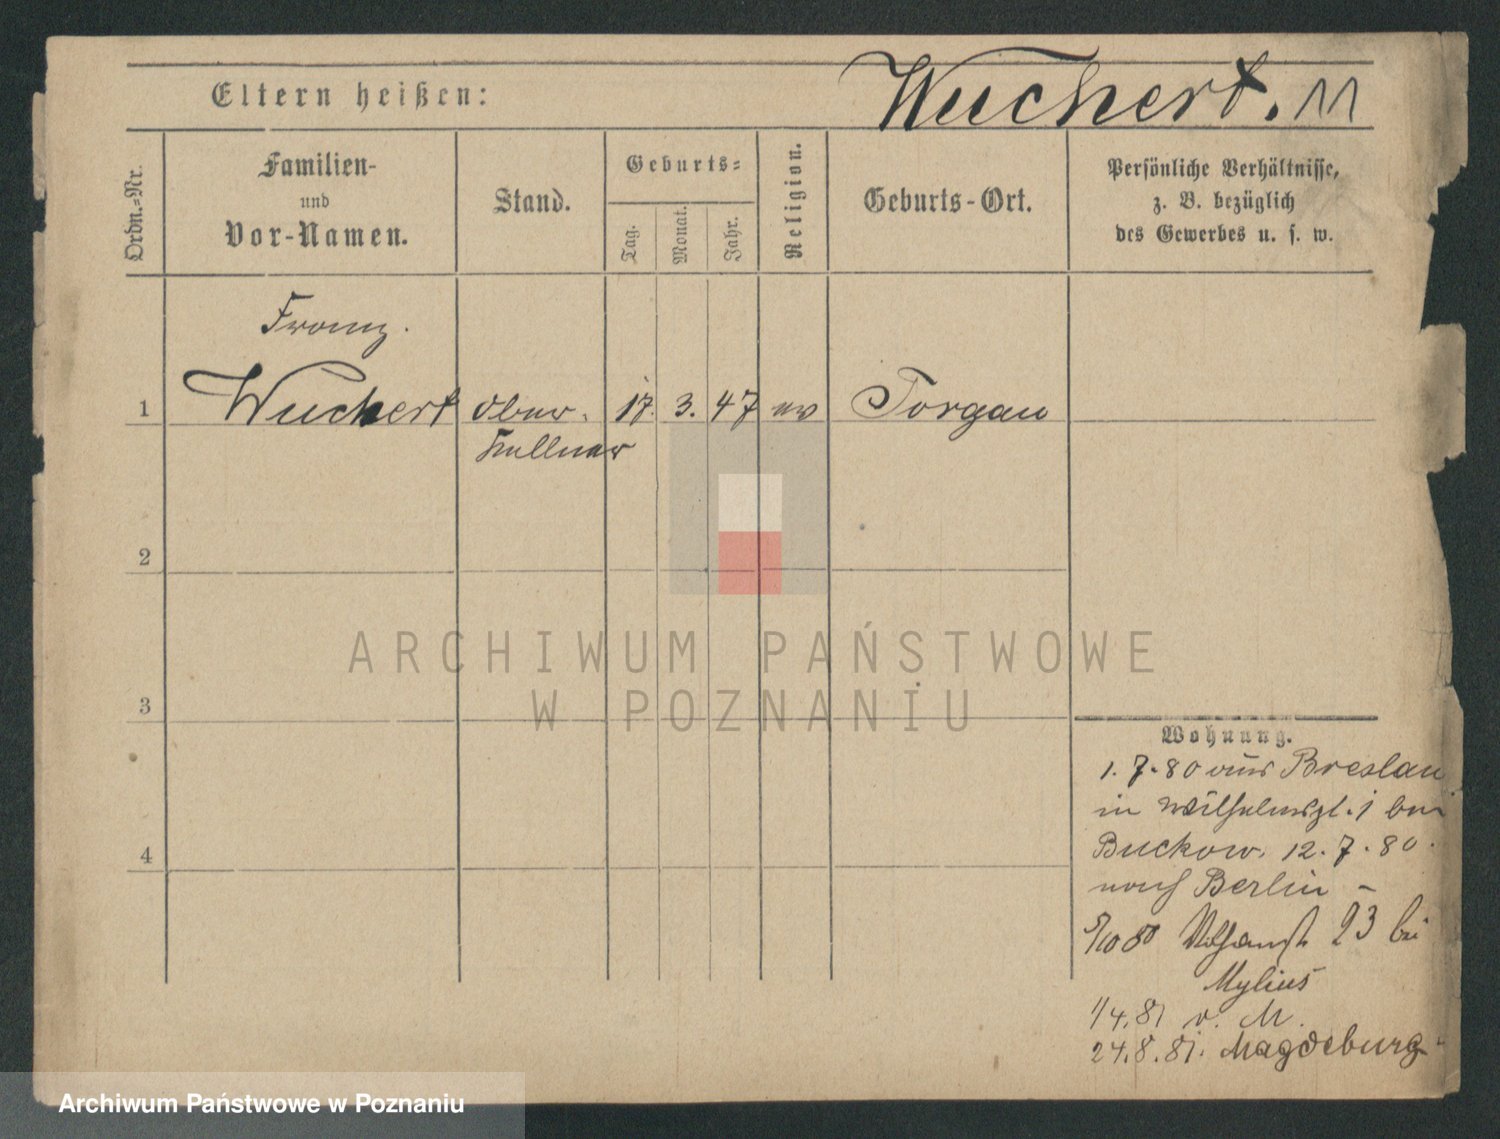 Eltern heißen:
Wuchert. 11
Ordn.-Nr.
Familien-
und
Vor-Namen.
Stand.
Geburts-
Tag.
Monat.
Jahr.
Religion.
Geburts-Ort.
Persönliche Verhältnisse,
z. B. bezüglich
des Gewerbes u. s. w.
Franz.
1 Wuchert Ober- 17. 3. 47 ev Torgau
kellner
2
3
4
Wohnung.
1. 7. 80 aus Breslau
in Wilhelmspl. 1 bei
Buckow. 12. 7. 80.
nach Berlin -
5/10 80 23 bei
Mylius
1/4. 81 v. M.
24. 8. 81. Magdeburg
ARCHIWUM PAŃSTWOWE
W POZNANIU
Archiwum Państwowe w Poznaniu